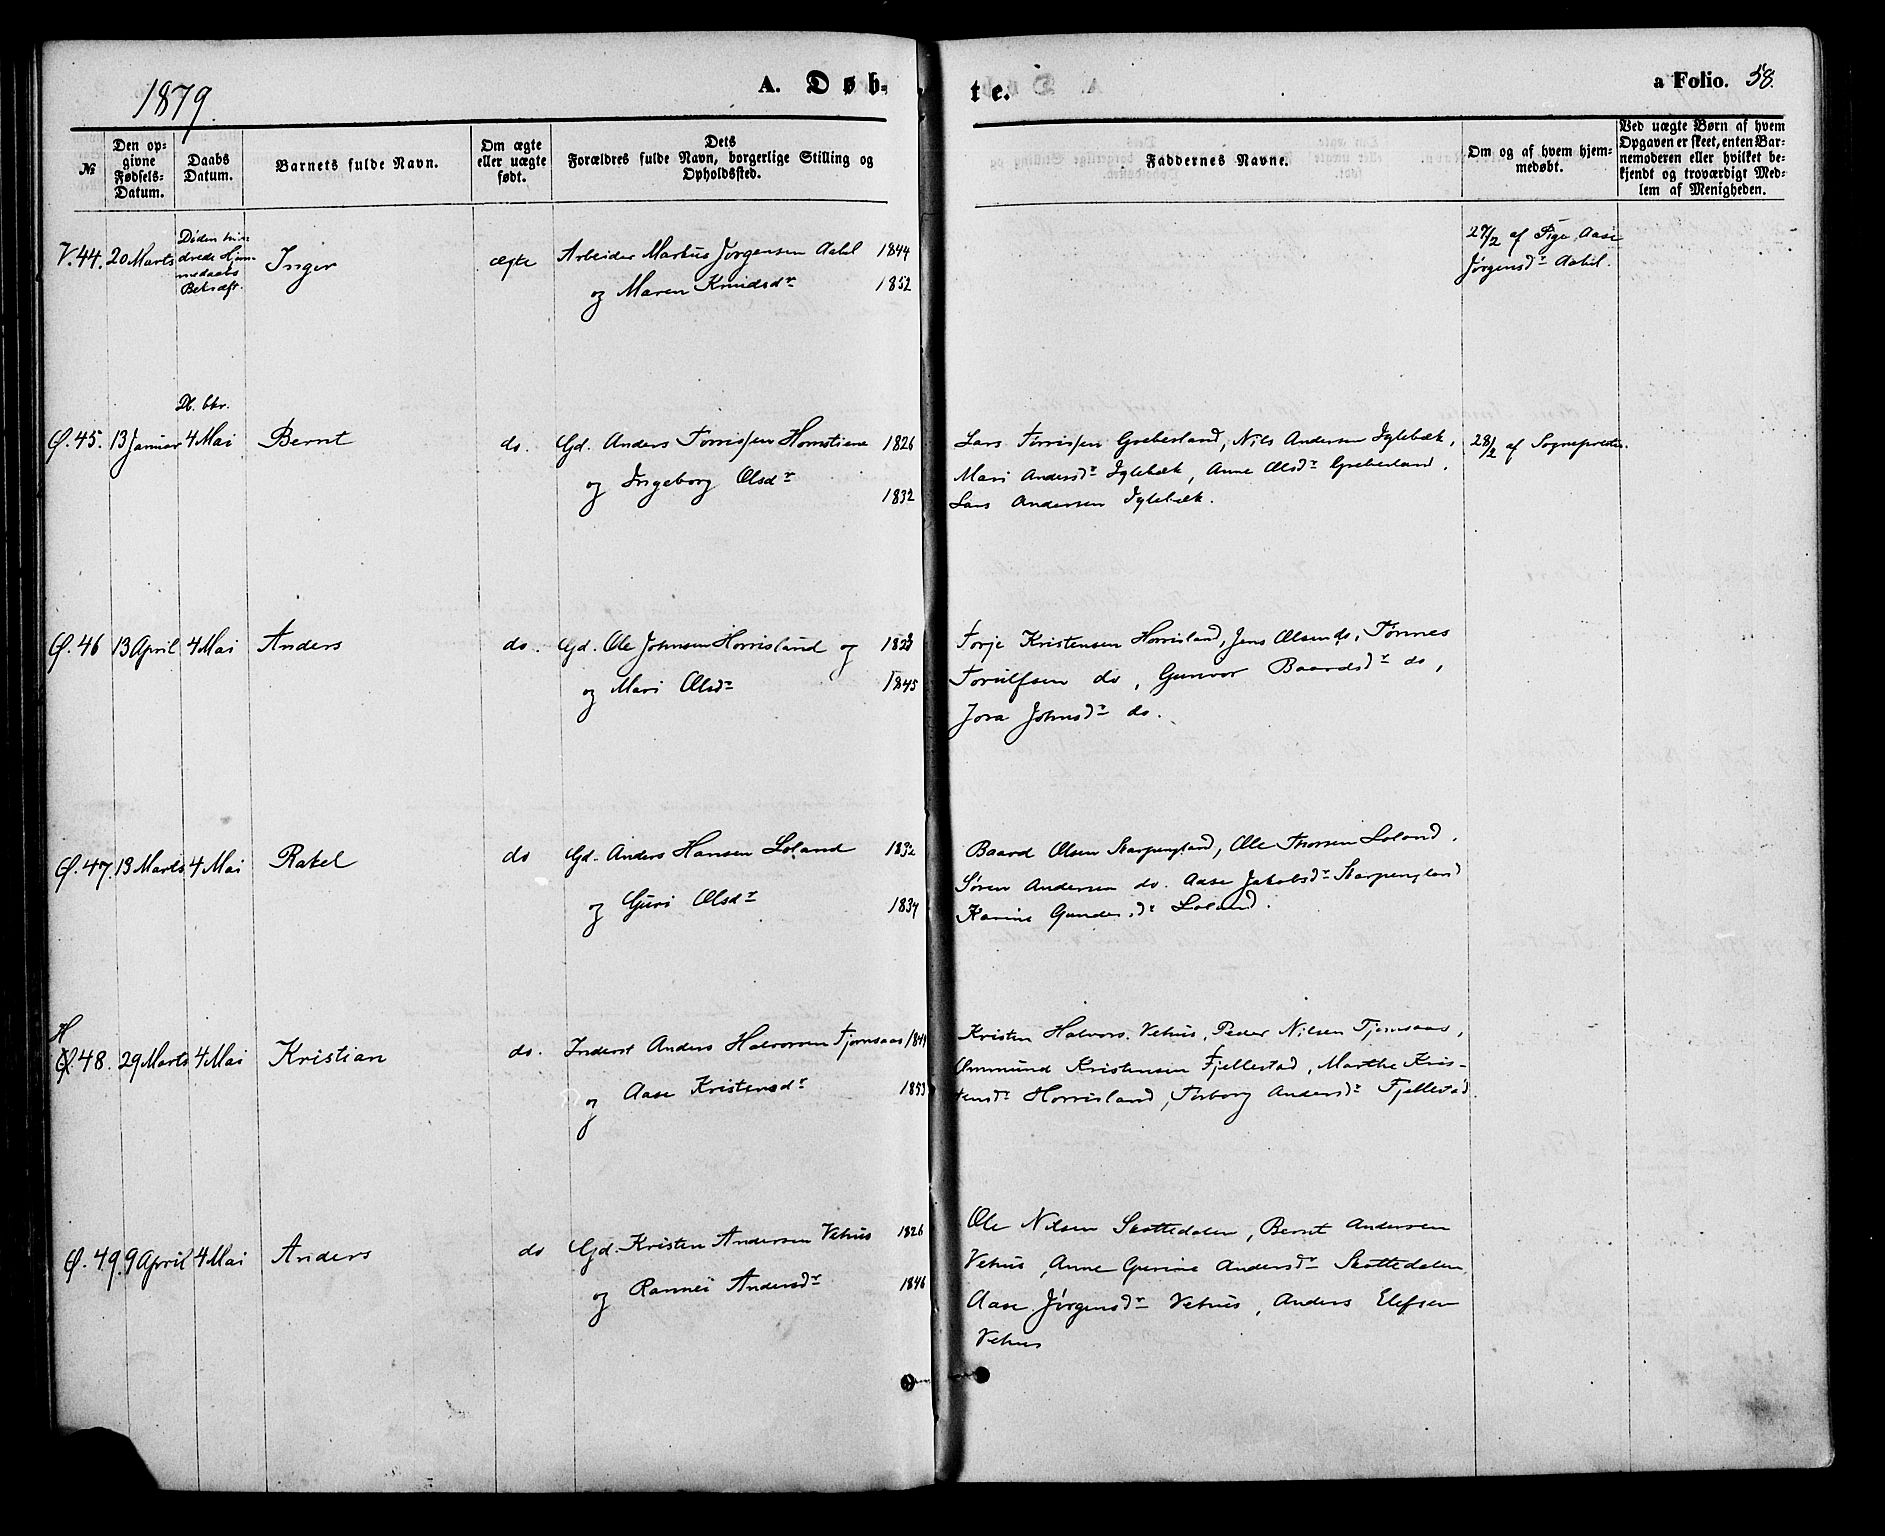 1879.
A. Døb-
te.
a Folio. 58.
№
Den op-
givne
Fødsels-
Datum.
Daabs
Datum.
Barnets fulde Navn.
Om ægte
eller uægte
født.
Dets
Forældres fulde Navn, borgerlige Stilling og
Opholdssted.
Faddernes Navne.
Om og af hvem hjem-
medøbt.
Ved uægte Børn af hvem
Opgaven er skeet, enten Bar-
nemoderen eller hvilket be-
kjendt og troværdigt Med-
lem af Menigheden.
V. 44. 20 Marts
Døden hin-
drede Hjem-
medaabs
Bekræft.
Inger
ægte
Arbeider Markus Jørgensen Aabel 1844
og Maren Knudsdr 1852
29/2 af Pige Aase
Jørgensdr Aabel.
Db. bkr.
Ø. 45. 13 Januar 4 Mai Bernt do. Gd. Anders Torrissen Homstiene 1826
og Ingeborg Olsdr 1832
Lars Torrissen Greberland, Nils Andersen Iglebæk,
Mari Andersdr Iglebæk, Anne Olsdr Greberland.
Lars Andersen Iglebæk.
28/2 af Sognepræsten
Ø. 46 13 April 4 Mai Anders do. Gd. Ole Johnsen Horrisland og
og Mari Olsdr 1845
Torje Kristensen Horrisland, Jens Olsen do, Tønnes
Torulfsen do, Gunvor Baardsdr do,
Jora Johnsdr do.
Ø. 47. 13 Marts 4 Mai Rakel do Gd. Anders Hansen Loland 1832
og Guri Olsdr 1834
Baard Olsen Skarpengland, Ole Thorsen Loland,
Søren Andersen do. Aase Jakobsdr Skarpengland
Karine Gundersdr Loland.
H
Ø. 48. 29 Marts 4 Mai Kristian do. Inderst Anders Halvorsen Tjomsaas 1841
og Aase Kristensdr 1853
Kristen Halvors. Vehus, Peder Nilsen Tjomsaas,
Ommund Kristensen Fjellestad, Marthe Kris-
tensdr Horrisland, Torborg Andersdr Fjellestad.
Ø. 49. 9 April 4 Mai Anders do Gd. Kristen Andersen Vehus 1826
og Rannei Andersdr 1846
Ole Nilsen Skottedalen, Bernt Andersen
Vehus, Anne Gurine Andersdr Skottedalen,
Aase Jørgensdr Vehus, Anders Elefsen
Vehus